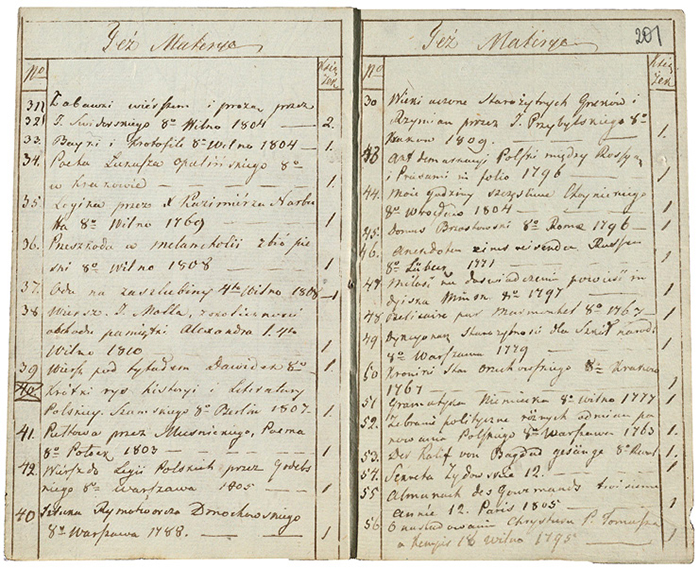 Też Materye
No
Ksią
żek
31. Zabawki wierszem i prozą przez
32. J. Swiderskiego 8º Wilno 1804 — 2.
33. Bayki i Krotofile 8º Wilno 1804 — 1.
34. Poeta Łukasza Opalińskiego 8º
w Krakowie — 1.
35. Logika przez X Kazimierza Narbu
tta 8º Wilno 1769 1
36. Przeszkoda w melancholii zbiór pie
śni 8º Wilno 1808 1
37. Oda na zaszlubiny 4to Wilno 1808 — 1
38 Wiersz J. Molla, z okoliczności
obchodu pamiątki Alexandra I. 4to
Wilno 1810 1
39 Wiersz pod tytułem Dawidek 8º 1
40 Krótki rys historyi i Literatury
Polskiey Szumskiego 8º Berlin 1807. 1
41. Pułtawa przez Muśnickiego, Poema
8º Połock 1803 — 1
42. Wiersz do Legii Polskich przez Godebs
kiego 8º Warszawa 1805 — 1
40 Sztuka Rymotworcza Dmochowskiego
8º Warszawa 1788. — 1
Też Materye
201
No
Ksią
żek
30 Wieki uczone Starożytnych Greków i
Rzymian przez J. Przybylskiego 8º
Krakow 1809. 1.
43 Akt demarkacyi Polski między Rossyą
i Prusami in folio 1796 — 1
44. Moie godziny szczęśliwe
8º Wrocław 1804 — 1
45. Domus 8º Romae 1796 — 1
46. Anekdoten Russen
8º Lübeck 1771 1
47 Miłość na doświadczenie powieść in
dyiska 8º 1797 — 1
48 Belisaire par Marmontel 8º 1767 — 1
49 Starożytności dla Szkół narod:
8º Warszawa 1779 1
50 Kroniki Stan. Orzechowskiego 8º Krakow
1767 — 1
51 Gramatyka Niemiecka 8º Wilno 1777 1
52. Zebranie polityczne różnych odmian pa
nowania Polskiego 8º Warszawa 1763 1
53. Der Kalif von Bagdad gesänge 8º 1
54. Sekreta Żydowskie 12. — 1
55 Almanach des Gourmands troisieme
Année 12. Paris 1805 — 1
56 O naśladowaniu Chrystusa P. Tomasza
a Kempis 18 Wilno 1795 — 1